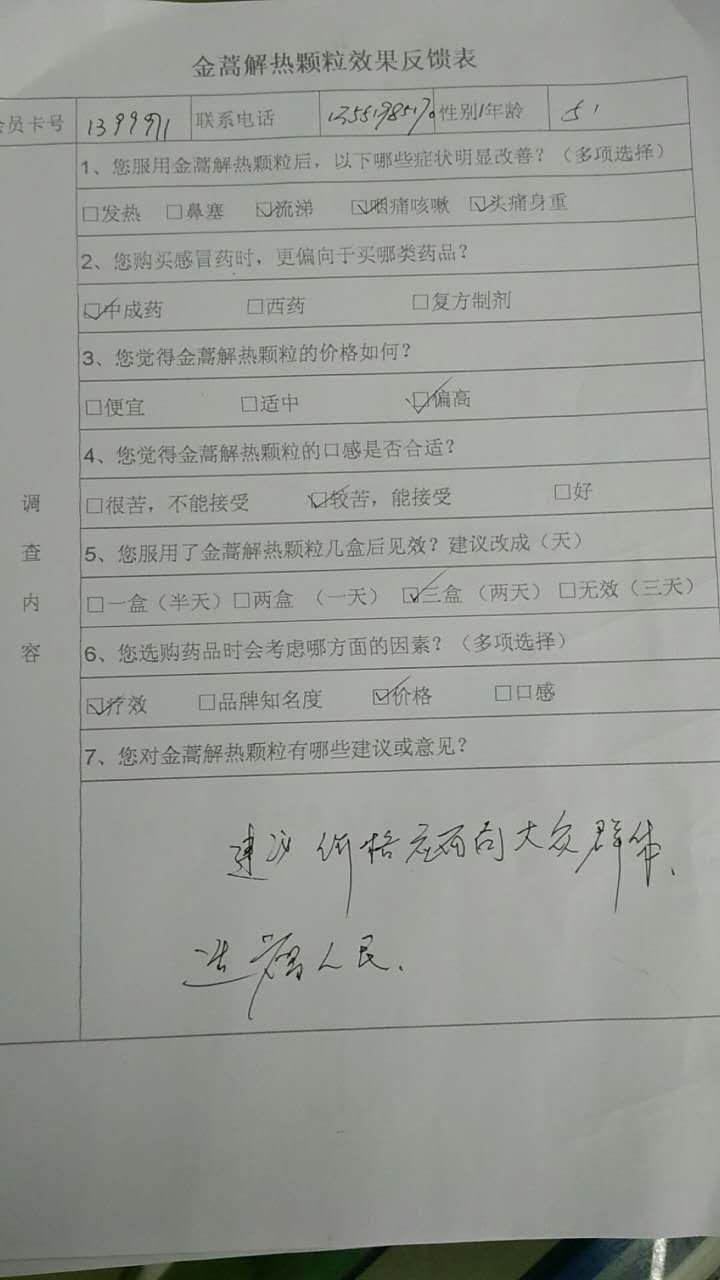 金蒿解热颗粒效果反馈表
会员卡号 1399971 联系电话 性别/年龄 51
1、您服用金蒿解热颗粒后，以下哪些症状明显改善？（多项选择）
□发热 □鼻塞 ☑流涕 ☑咽痛咳嗽 ☑头痛身重
2、您购买感冒药时，更偏向于买哪类药品？
☑中成药 □西药 □复方制剂
3、您觉得金蒿解热颗粒的价格如何？
□便宜 □适中 ☑偏高
4、您觉得金蒿解热颗粒的口感是否合适？
□很苦，不能接受 ☑较苦，能接受 □好
调查内容
5、您服用了金蒿解热颗粒几盒后见效？建议改成（天）
□一盒（半天）□两盒 （一天） ☑三盒（两天）□无效（三天）
6、您选购药品时会考虑哪方面的因素？（多项选择）
☑疗效 □品牌知名度 ☑价格 □口感
7、您对金蒿解热颗粒有哪些建议或意见？
建议价格应面向大众群体、
造福人民.